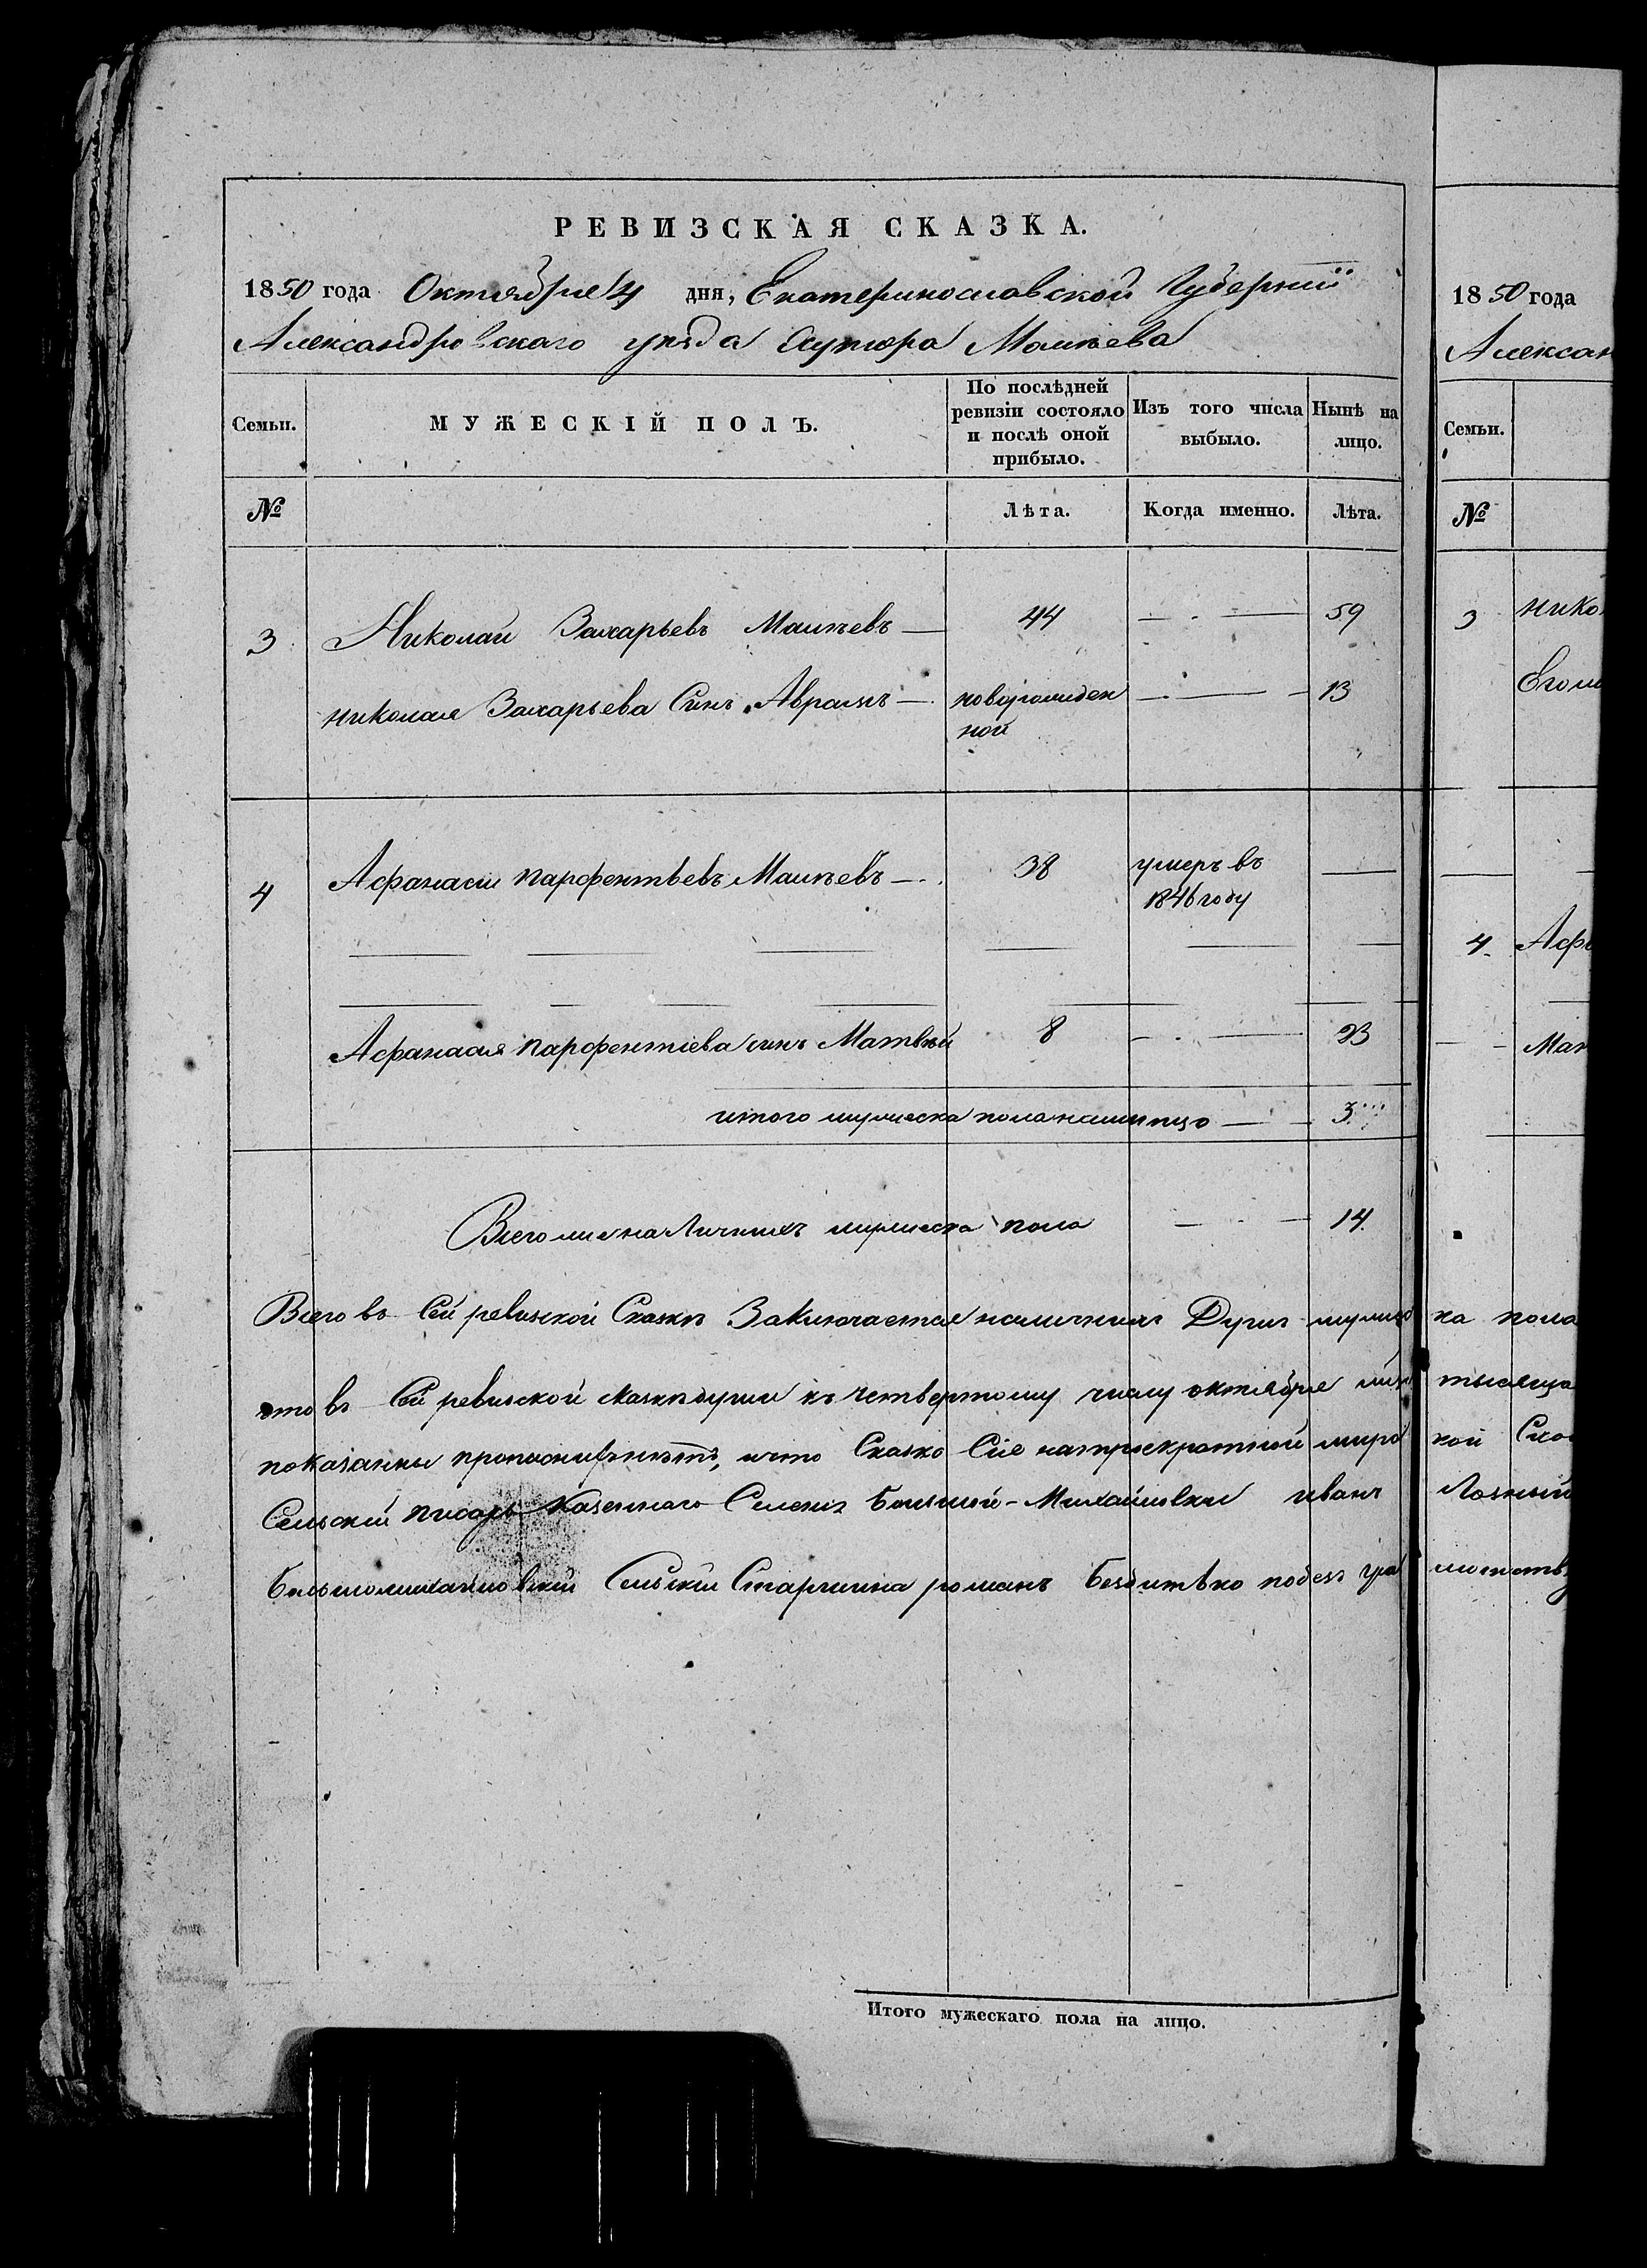 РЕВИЗСКАЯ СКАЗКА.
1850 года Октября 4 дня, Екатеринославской Губернии
Александровскаго уѣзда Хутора Малѣева
Семьи. МУЖЕСКІЙ ПОЛЪ. По послѣдней ревизіи состояло и послѣ оной прибыло. Изъ того числа выбыло. Нынѣ на лицо.
№ Лѣта. Когда именно. Лѣта.
3 Николай Захарьевъ Малѣевъ — 44 — 59
николая Захарьева Синъ Аврамъ — новорожден — 13
ной
4 Афанасіи парфентьевъ Малѣевъ — 38 умеръ въ —
1846 году
Афанасія парфентіева синъ Матвѣй 8 — 23
итого мужеска пола налицо — 3
Всего наличнихъ мужеска пола — 14.
Всего въ Сей ревизской Сказкѣ Заключается наличнихъ Душъ
что въ Сей ревизской сказкѣ души къ четвертому числу октября
показанны и что Сказка Сія
Сельскій писарь Казеннаго Селенія Большой-Михайловки иванъ
Большомихайловскій Сельскій Старшина романъ
Итого мужескаго пола на лицо.
1850 года
Алексан
Семьи.
№
3 нико
Его
4. Афа
Мат
ка пола
тысяща
кой Ска